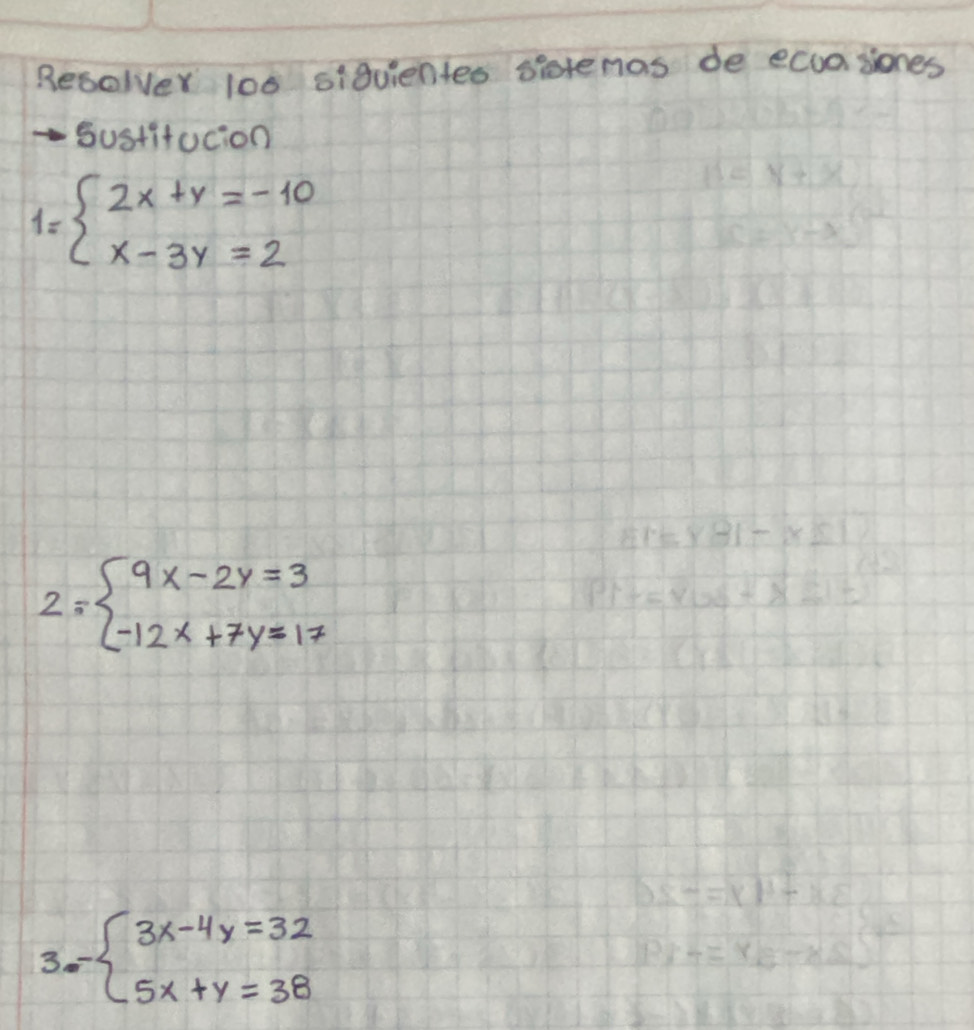 Resolver los siguientes sistemas de ecuasiones
→ Sustitucion
1= { 2x + y = -10
x - 3y = 2
2= { 9x - 2y = 3
-12x + 7y = 17
3.- { 3x - 4y = 32
5x + y = 38